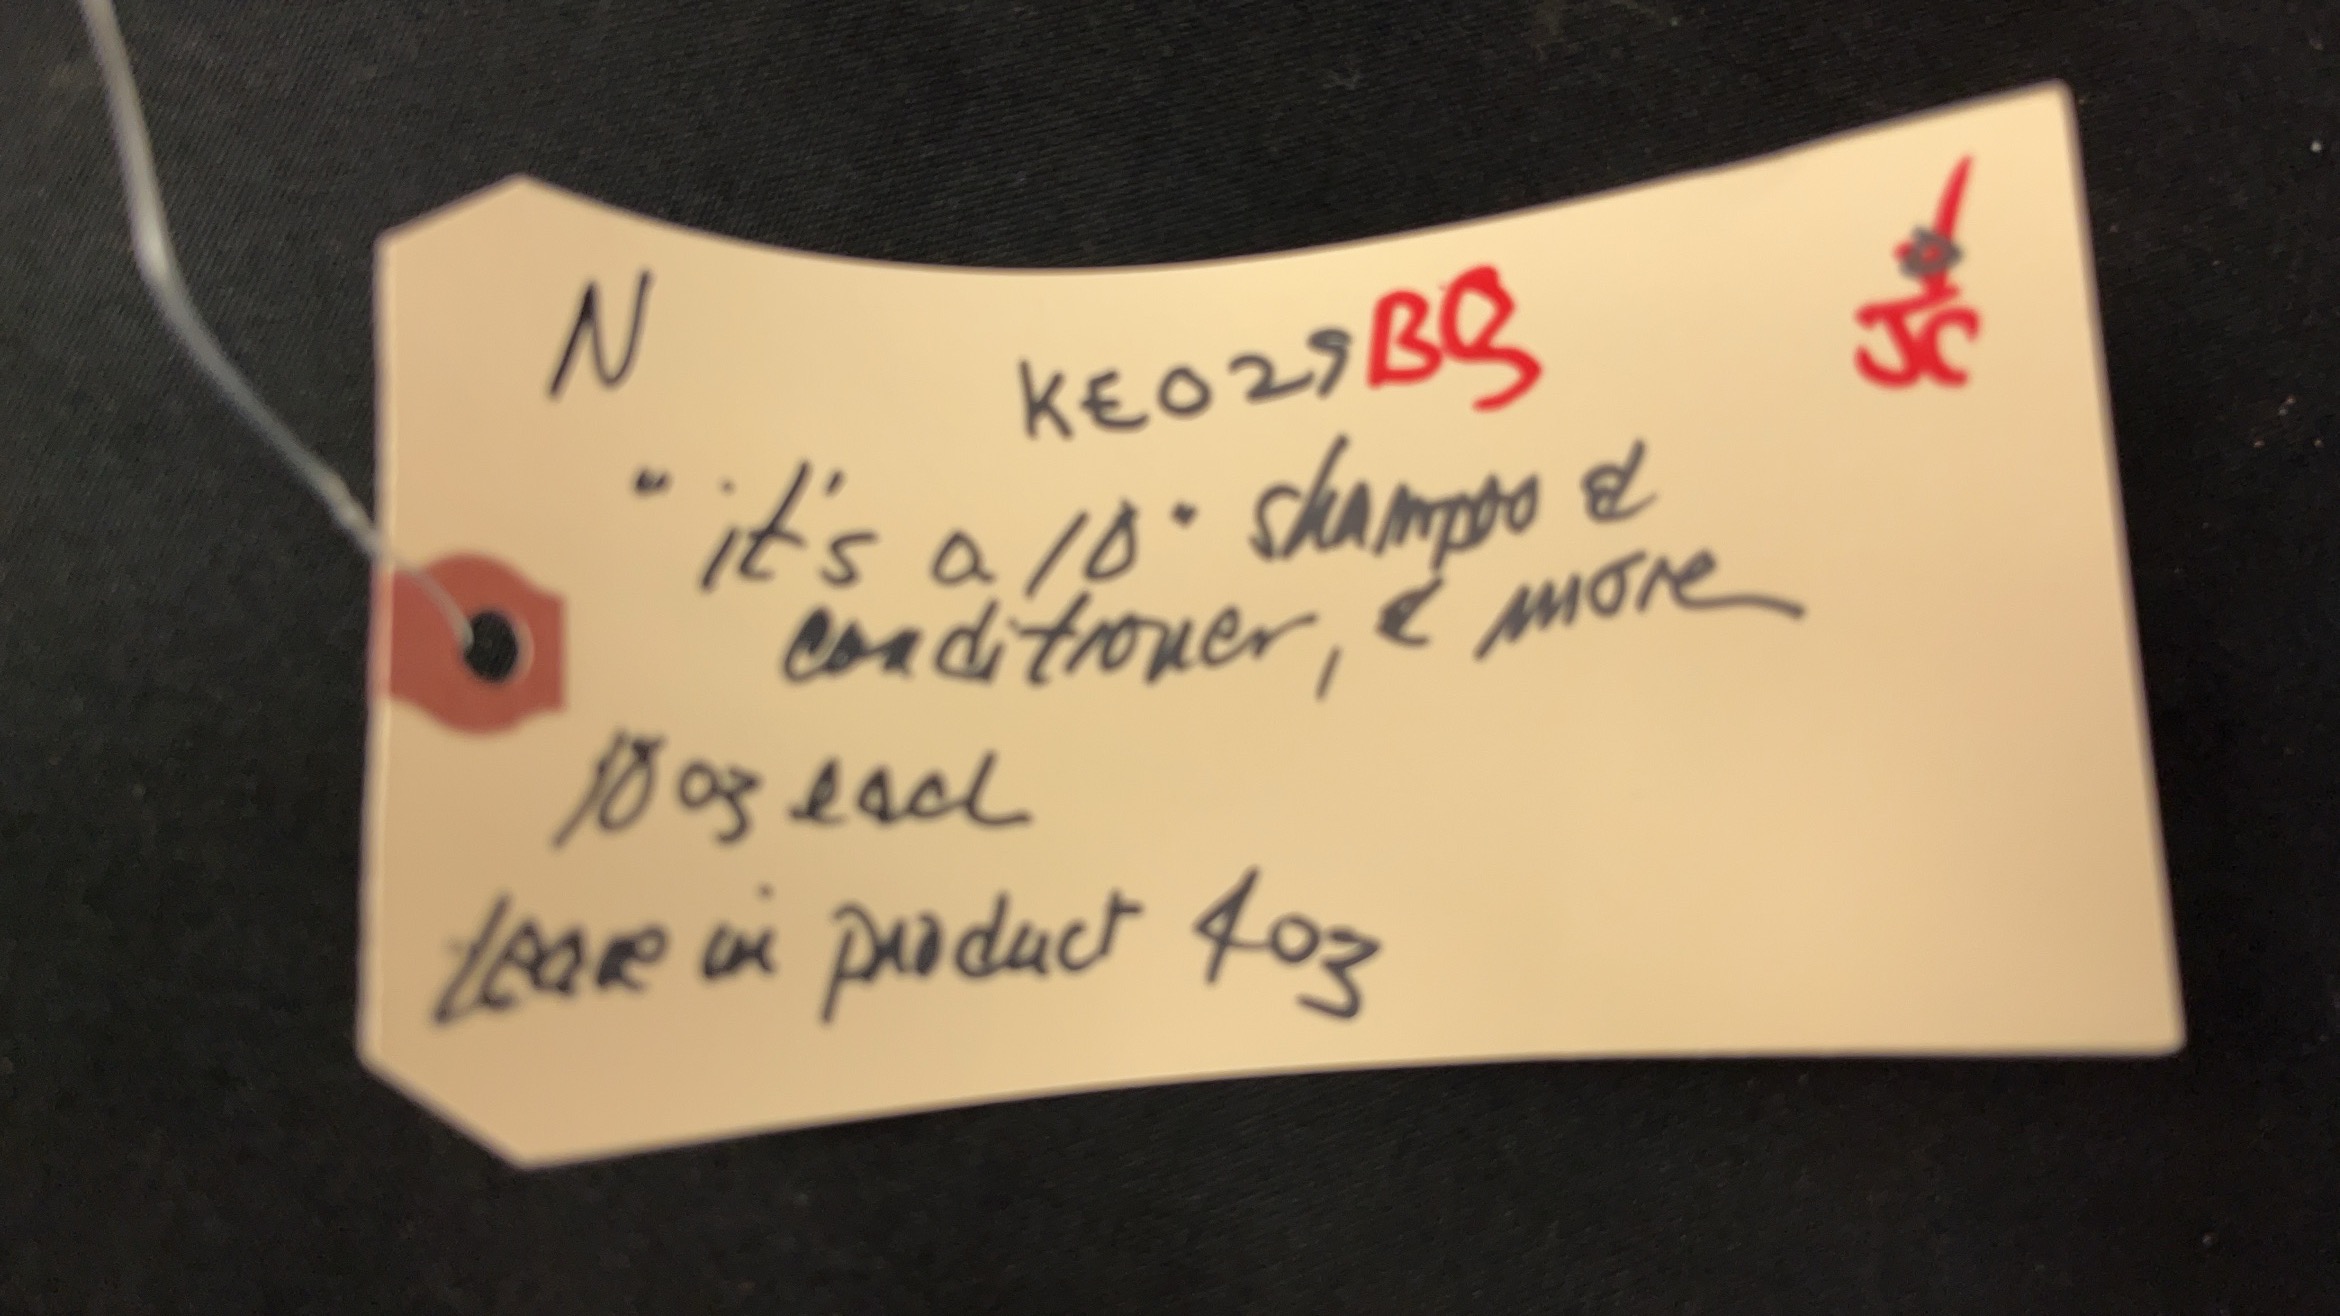 N
KE029 BQ
JC
"it's a 10" shampoo &
conditioner, & more
10 oz each
Leave in product 4oz